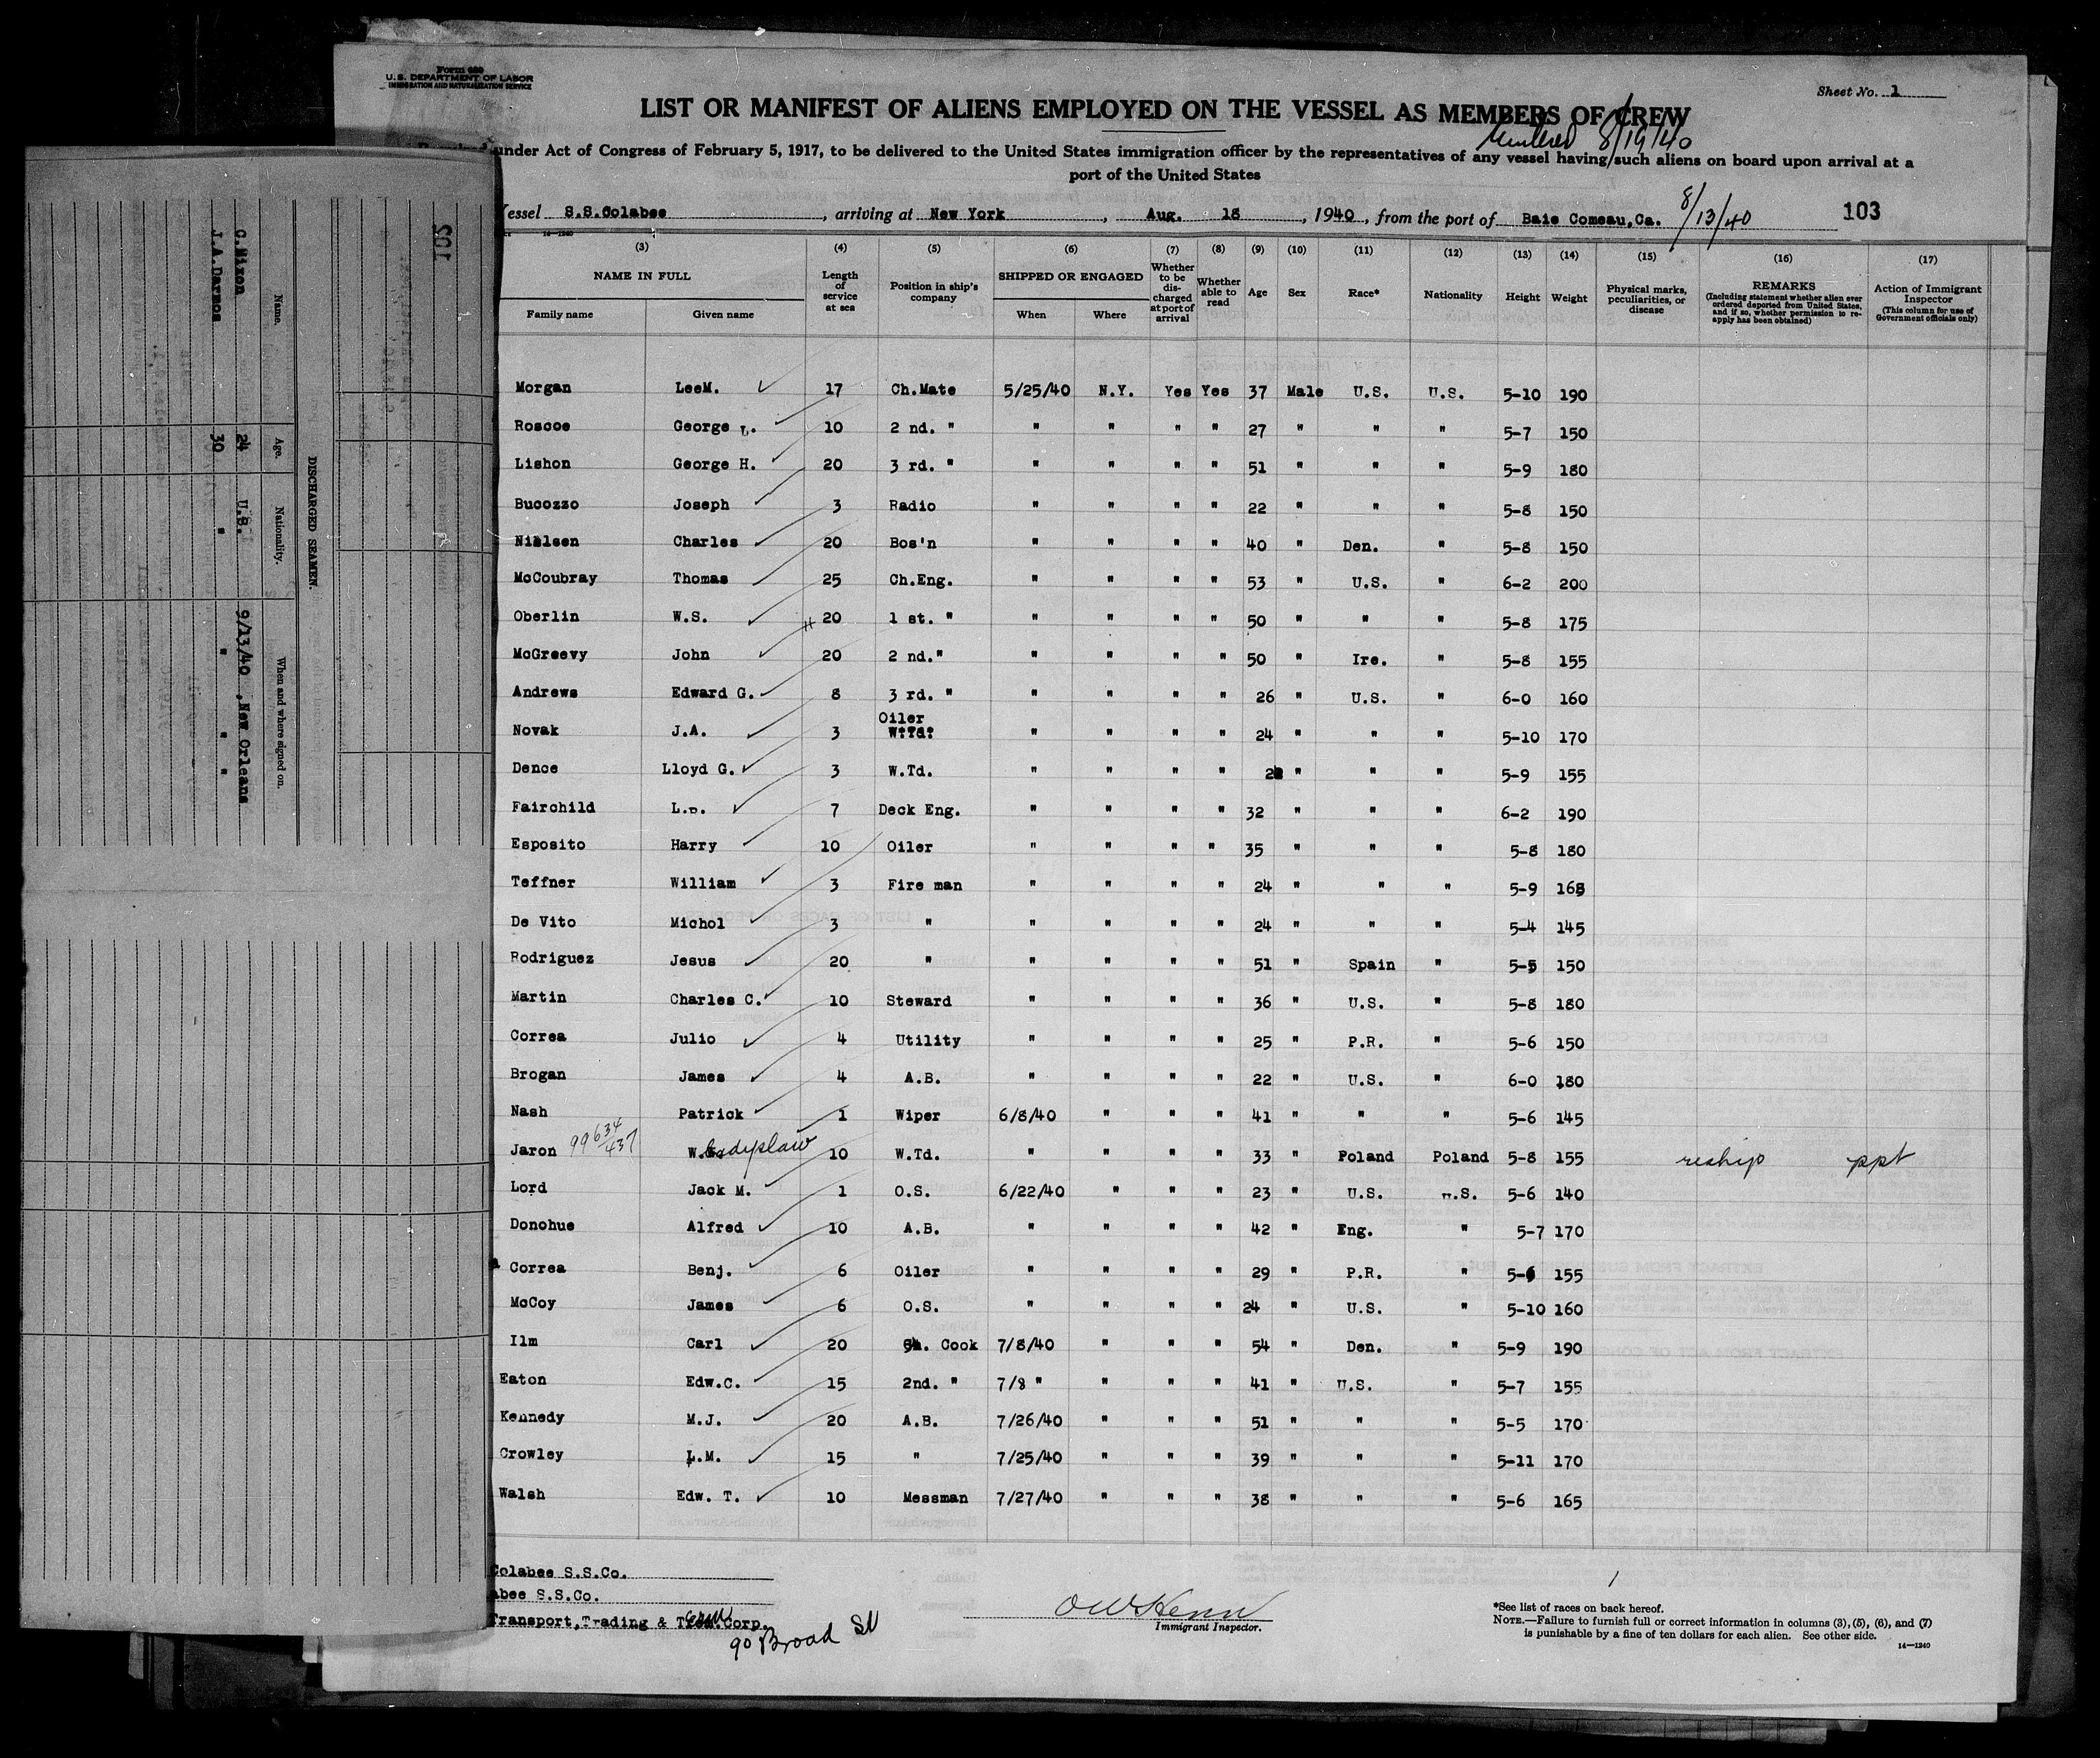 Form 689
U.S. DEPARTMENT OF LABOR
IMMIGRATION AND NATURALIZATION SERVICE
Sheet No. 1
LIST OR MANIFEST OF ALIENS EMPLOYED ON THE VESSEL AS MEMBERS OF CREW
8/19/40
under Act of Congress of February 5, 1917, to be delivered to the United States immigration officer by the representatives of any vessel having such aliens on board upon arrival at a
port of the United States
Vessel S.S.Colabee, arriving at New York, Aug. 18, 1940, from the port of Baie Comeau,Ca. 8/13/40 103
14-1240
(3) (4) (5) (6) (7) (8) (9) (10) (11) (12) (13) (14) (15) (16) (17)
NAME IN FULL
Family name Given name
Length of service at sea
Position in ship's company
SHIPPED OR ENGAGED
When Where
Whether to be discharged at port of arrival
Whether able to read
Age
Sex
Race*
Nationality
Height
Weight
Physical marks, peculiarities, or disease
REMARKS
(Including statement whether alien ever ordered deported from United States, and if so, whether permission to reapply has been obtained)
Action of Immigrant Inspector
(This column for use of Government officials only)
Morgan LeeM. 17 Ch.Mate 5/25/40 N.Y. Yes Yes 37 Male U.S. U.S. 5-10 190
Roscoe George L. 10 2 nd. " " " " " 27 " " " 5-7 150
Lishon George H. 20 3 rd. " " " " " 51 " " " 5-9 180
Bucozzo Joseph 3 Radio " " " " 22 " " " 5-8 150
Nielsen Charles 20 Bos'n " " " " 40 " Den. " 5-8 150
McCoubray Thomas 25 Ch.Eng. " " " " 53 " U.S. " 6-2 200
Oberlin W.S. 20 1 st. " " " " " 50 " " " 5-8 175
McGreevy John 20 2 nd." " " " " 50 " Ire. " 5-8 155
Andrews Edward G. 8 3 rd. " " " " " 26 " U.S. " 6-0 160
Novak J.A. 3 Oiler W.Td. " " " " 24 " " " 5-10 170
Dence Lloyd G. 3 W.Td. " " " " " " " 5-9 155
Fairchild 7 Deck Eng. " " " " 32 " " " 6-2 190
Esposito Harry 10 Oiler " " " " 35 " " " 5-8 180
Teffner William 3 Fire man " " " " 24 " " " 5-9 165
De Vito Michol 3 " " " " " 24 " " " 5-4 145
Rodriguez Jesus 20 " " " " " 51 " Spain " 5-5 150
Martin Charles C. 10 Steward " " " " 36 " U.S. " 5-8 180
Correa Julio 4 Utility " " " " 25 " P.R. " 5-6 150
Brogan James 4 A.B. " " " " 22 " U.S. " 6-0 180
Nash Patrick 1 Wiper 6/8/40 " " " 41 " " " 5-6 145
Jaron 99634/437 W. 10 W.Td. " " " " 33 " Poland Poland 5-8 155 reship ppt
Lord Jack M. 1 O.S. 6/22/40 " " " 23 " U.S. U.S. 5-6 140
Donohue Alfred 10 A.B. " " " " 42 " Eng. " 5-7 170
Correa Benj. 6 Oiler " " " " 29 " P.R. " 5-6 155
McCoy James 6 O.S. " " " " 24 " U.S. " 5-10 160
Ilm Carl 20 Ch. Cook 7/8/40 " " " 54 " Den. " 5-9 190
Eaton Edw.C. 15 2nd. " 7/8 " " " " 41 " U.S. " 5-7 155
Kennedy M.J. 20 A.B. 7/26/40 " " " 51 " " " 5-5 170
Crowley L.M. 15 " 7/25/40 " " " 39 " " " 5-11 170
Walsh Edw. T. 10 Messman 7/27/40 " " " 38 " " " 5-6 165
Colabee S.S.Co.
abee S.S.Co.
Transport,Trading & Term.Corp.
90 Broad St
Immigrant Inspector.
*See list of races on back hereof.
NOTE.—Failure to furnish full or correct information in columns (3), (5), (6), and (7)
is punishable by a fine of ten dollars for each alien. See other side.
14—1240
103
DISCHARGED SEAMEN.
Name. Age. Nationality. When and where signed on.
C.Nixon 24 U.S. 9/13/40 ,New Orleans
I.A.Darmos 30 " " " "